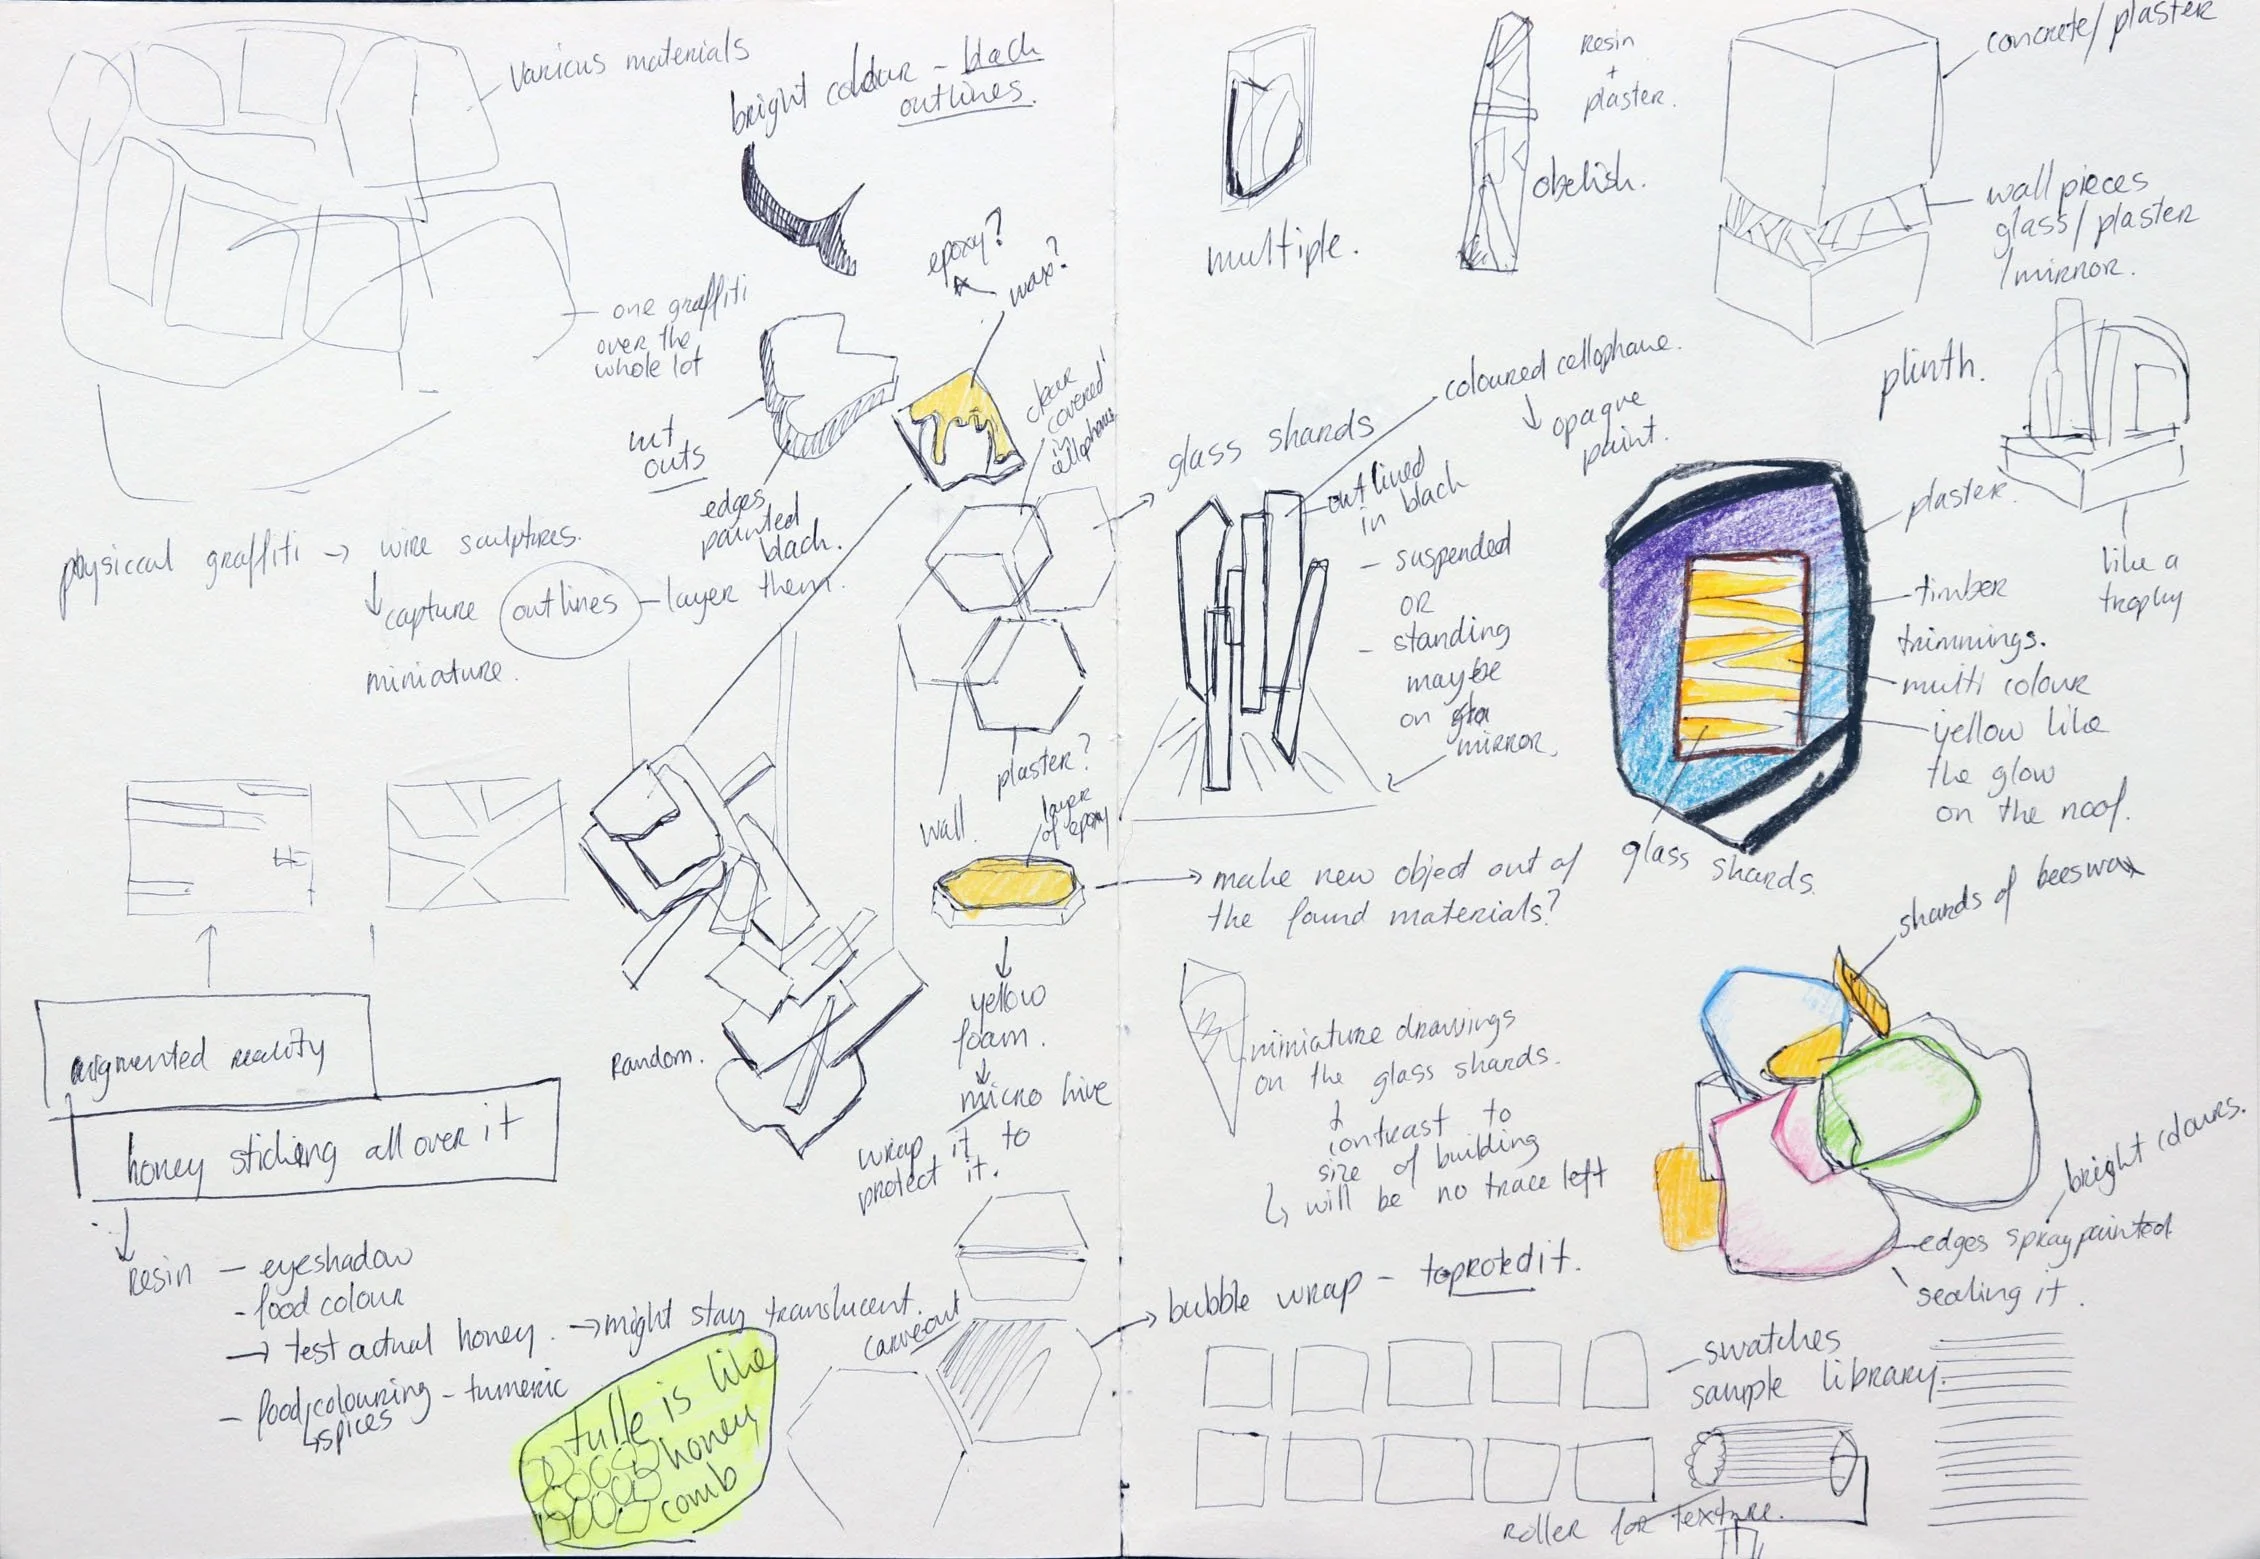 various materials
bright colour - black
outlines.
epoxy?
wax?
one graffiti
over the
whole lot
cut
outs
edges
painted
black.
clear
covered
in
cellophane
physical graffiti → wire sculptures.
capture outlines - layer them.
miniature.
plaster?
wall.
layer
of epoxy
augmented reality
honey sticking all over it
Random.
yellow
foam.
micro hive
wrap it to
protect it.
resin - eyeshadow
- food colour
→ test actual honey. → might stay translucent.
- food colouring - tumeric
spices
tulle is like
honey
comb
carve out
multiple.
Resin
+
plaster.
obelish.
concrete/plaster
wall pieces
glass/plaster
/mirror.
plinth.
like a
trophy
glass shards
coloured cellophane.
opaque
paint.
outlined
in black
- suspended
OR
- standing
maybe
on
mirror.
plaster.
timber
trimmings.
multi colour
yellow like
the glow
on the roof.
glass shards.
make new object out of
the found materials?
shards of beeswax
miniature drawings
on the glass shards.
contrast to
size of building
will be no trace left
bright colours.
edges spraypainted
sealing it.
bubble wrap - to protect it.
swatches
sample library.
roller for texture.